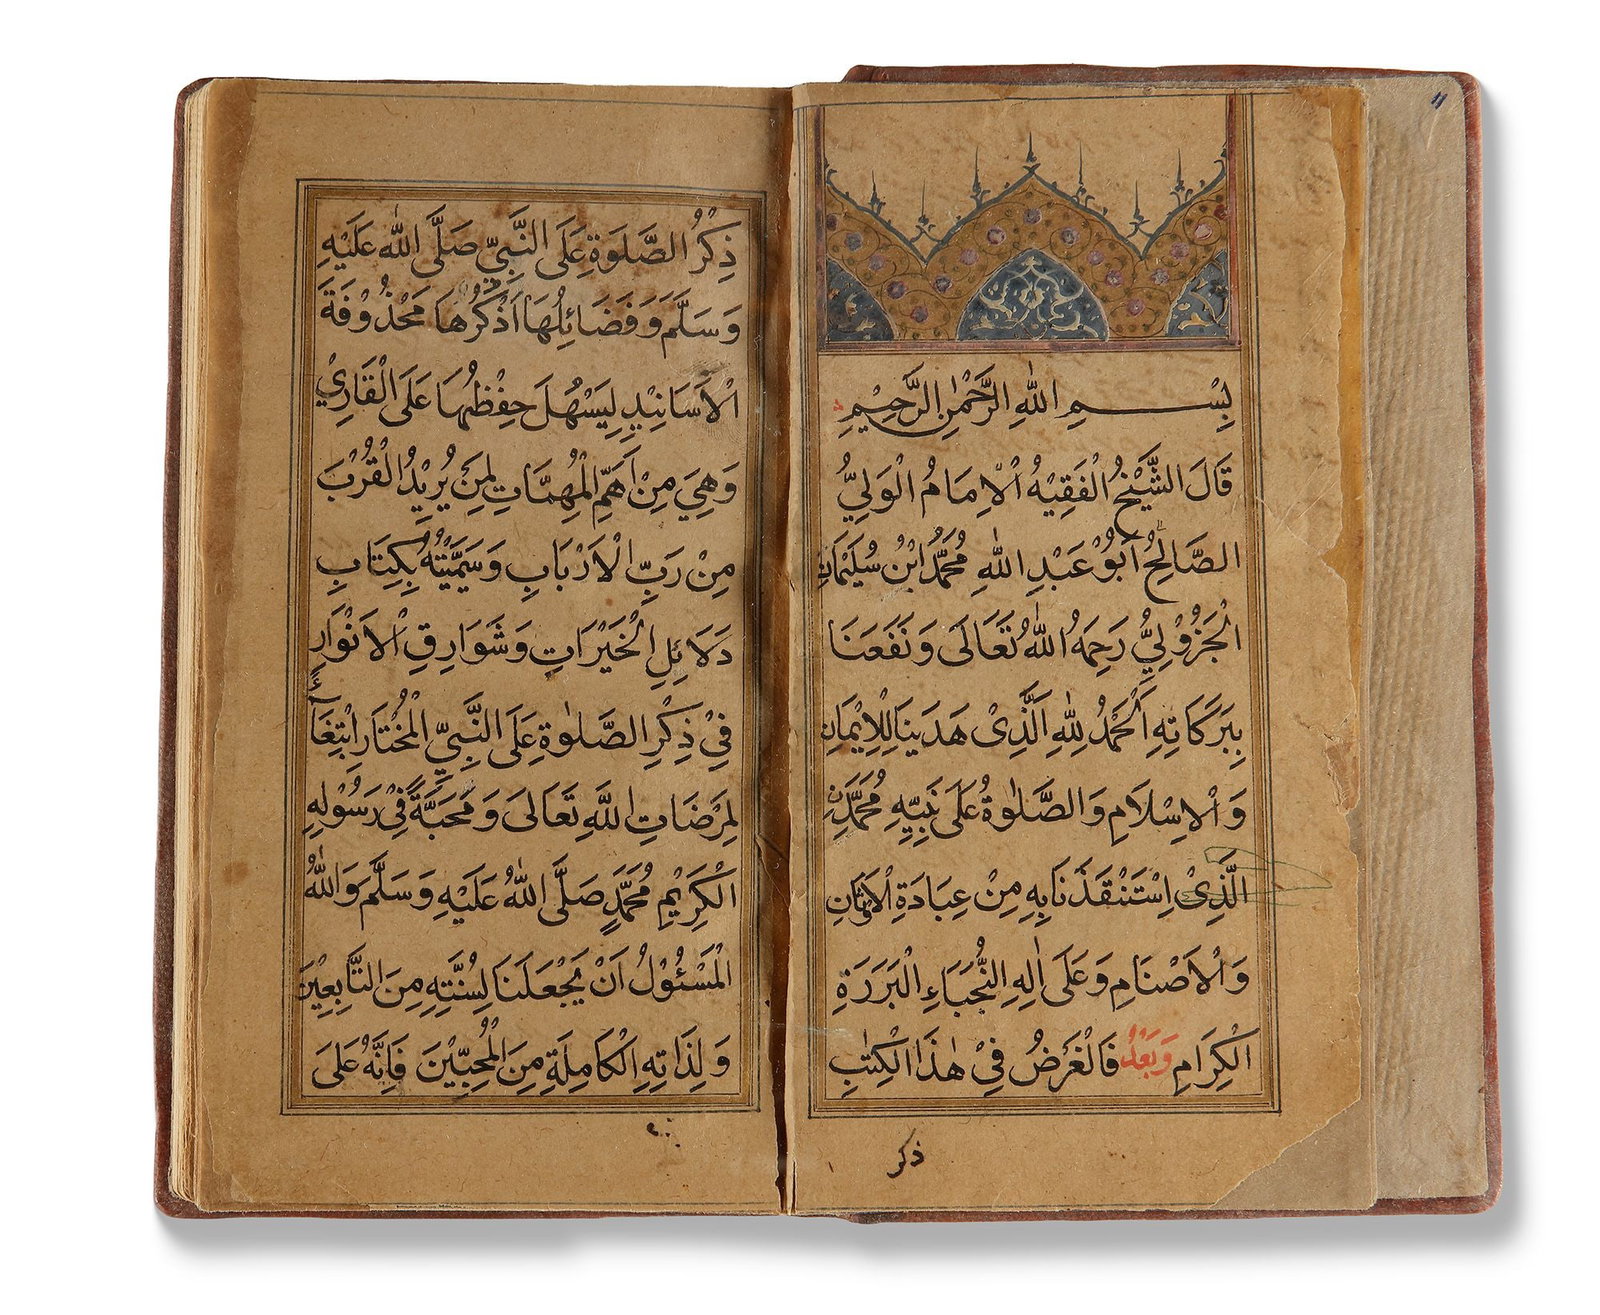 بِسْمِ اللّٰهِ الرَّحْمٰنِ الرَّحِيْمِ
قَالَ الشَّيْخُ الْفَقِيْهُ الْاِمَامُ الْوَلِيُّ
الصَّالِحُ اَبُوْ عَبْدِ اللّٰهِ مُحَمَّدُ ابْنُ سُلَيْمَانِ
الْجَزُوْلِيُّ رَحِمَهُ اللّٰهُ تَعَالَى وَنَفَعَنَا
بِبَرَكَاتِهِ اَلْحَمْدُ لِلّٰهِ الَّذِىْ هَدَينَا لِلْاِيْمَانِ
وَالْاِسْلَامِ وَالصَّلٰوةُ عَلَى نَبِيِّهِ مُحَمَّدِنِ
الَّذِىْ اِسْتَنْقَذَنَا بِهِ مِنْ عِبَادَةِ الْاَوْثَانِ
وَالْاَصْنَامِ وَعَلَى اٰلِهِ النُّجَبَاءِ الْبَرَرَةِ
الْكِرَامِ وَبَعْدُ فَالْغَرَضُ فِيْ هٰذَا الْكِتٰبِ
ذكر
ذِكْرُ الصَّلَوٰةِ عَلَى النَّبِيِّ صَلَّى اللّٰه عَلَيْهِ
وَسَلَّمَ وَفَضَائِلُهَا اَذْكُرُهَا مَحْذُوْفَةَ
الْاَسَانِيْدِ لِيَسْهُلَ حِفْظُهَا عَلَى الْقَارِيْ
وَهِيَ مِنْ اَهَمِّ الْمُهِمَّاتِ لِمَنْ يُرِيْدُ الْقُرْبَ
مِنْ رَبِّ الْاَرْبَابِ وَسَمَّيْتُهُ بِكِتَابِ
دَلَائِلِ الْخَيْرَاتِ وَشَوَارِقِ الْاَنْوَارِ
فِيْ ذِكْرِ الصَّلٰوةِ عَلَى النَّبِيِّ الْمُخْتَارِ ابْتِغَآءً
لِمَرْضَاتِ اللّٰهِ تَعَالَى وَمَحَبَّةً فِيْ رَسُوْلِهِ
الْكَرِيْمِ مُحَمَّدٍ صَلَّى اللّٰهُ عَلَيْهِ وَسَلَّمَ وَاللّٰهُ
الْمَسْئُوْلُ اَنْ يَجْعَلَنَا لِسُنَّتِهِ مِنَ التَّابِعِيْنَ
وَلِذَاتِهِ الْكَامِلَةِ مِنَ الْمُحِبِّيْنَ فَاِنَّهُ عَلَىَ